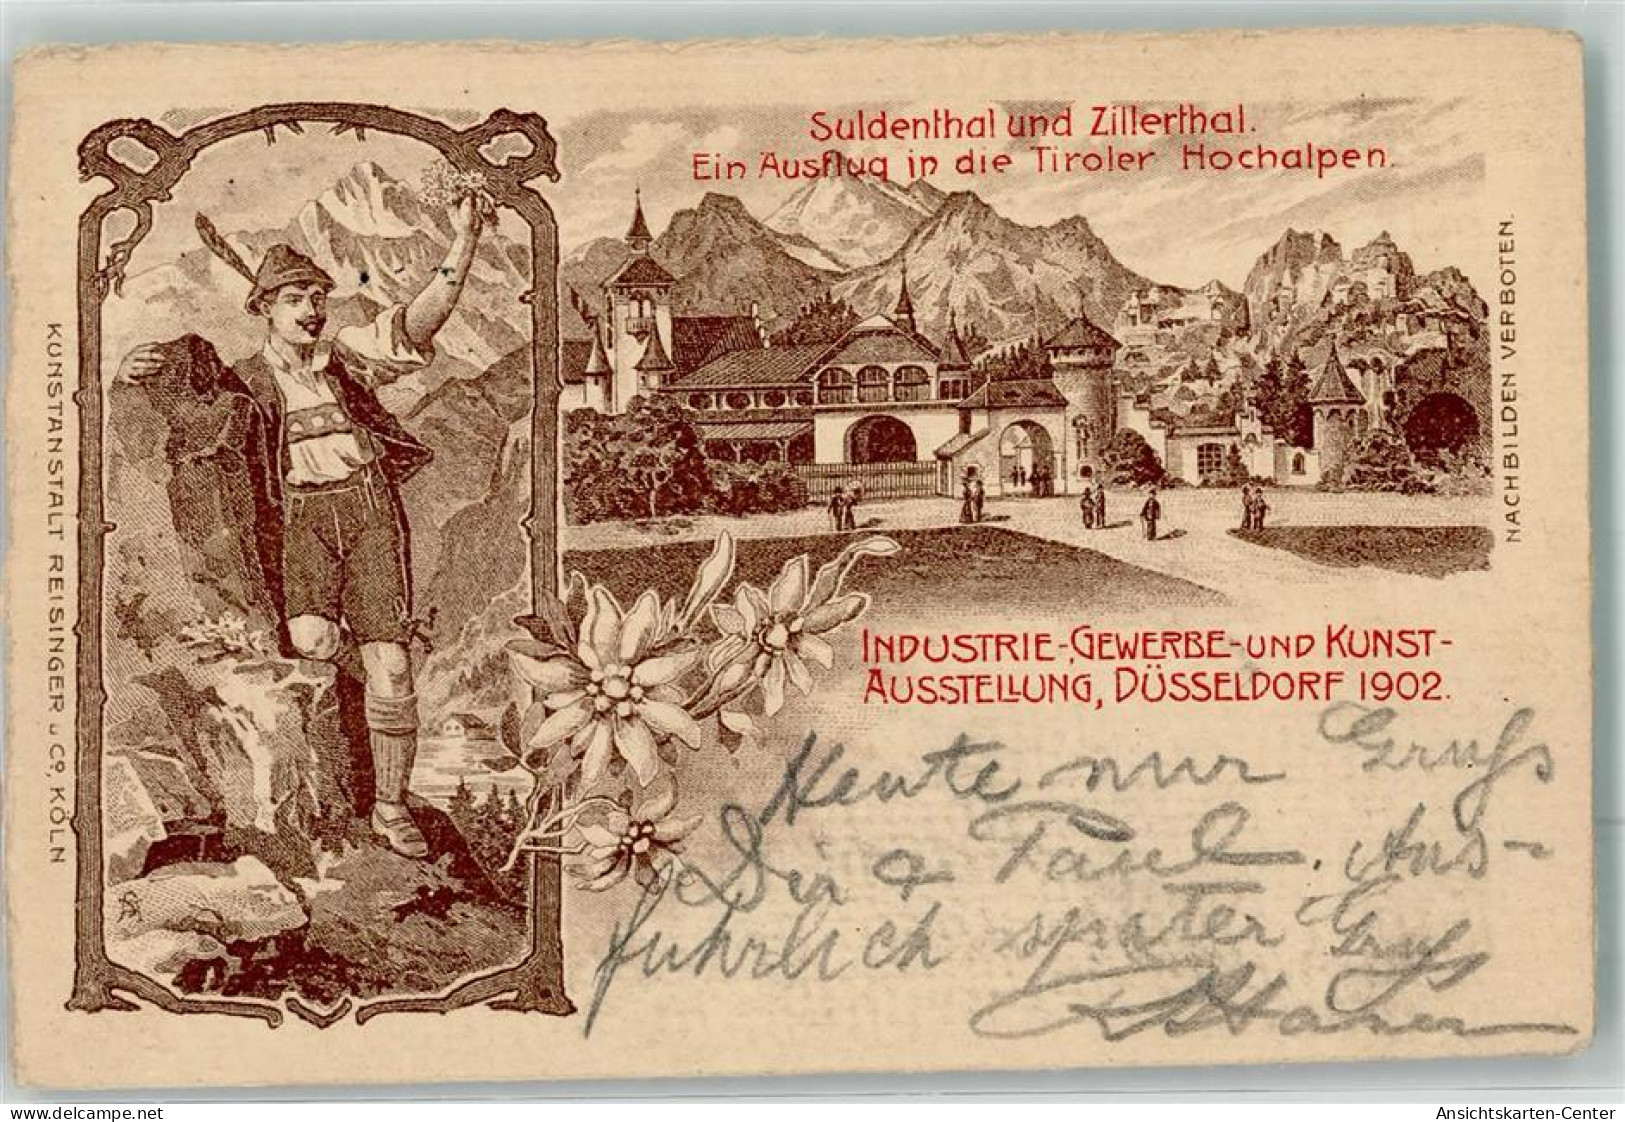 Suldenthal und Zillerthal.
Ein Ausflug in die Tiroler Hochalpen.
KUNSTANSTALT REISINGER u Co, KÖLN
NACHBILDEN VERBOTEN.
INDUSTRIE-, GEWERBE- UND KUNST-
AUSSTELLUNG, DÜSSELDORF 1902.
Heute nur Gruss
Dir & Paul. Aus-
fuhrlich spater Gruss
www.delcampe.net
Ansichtskarten-Center